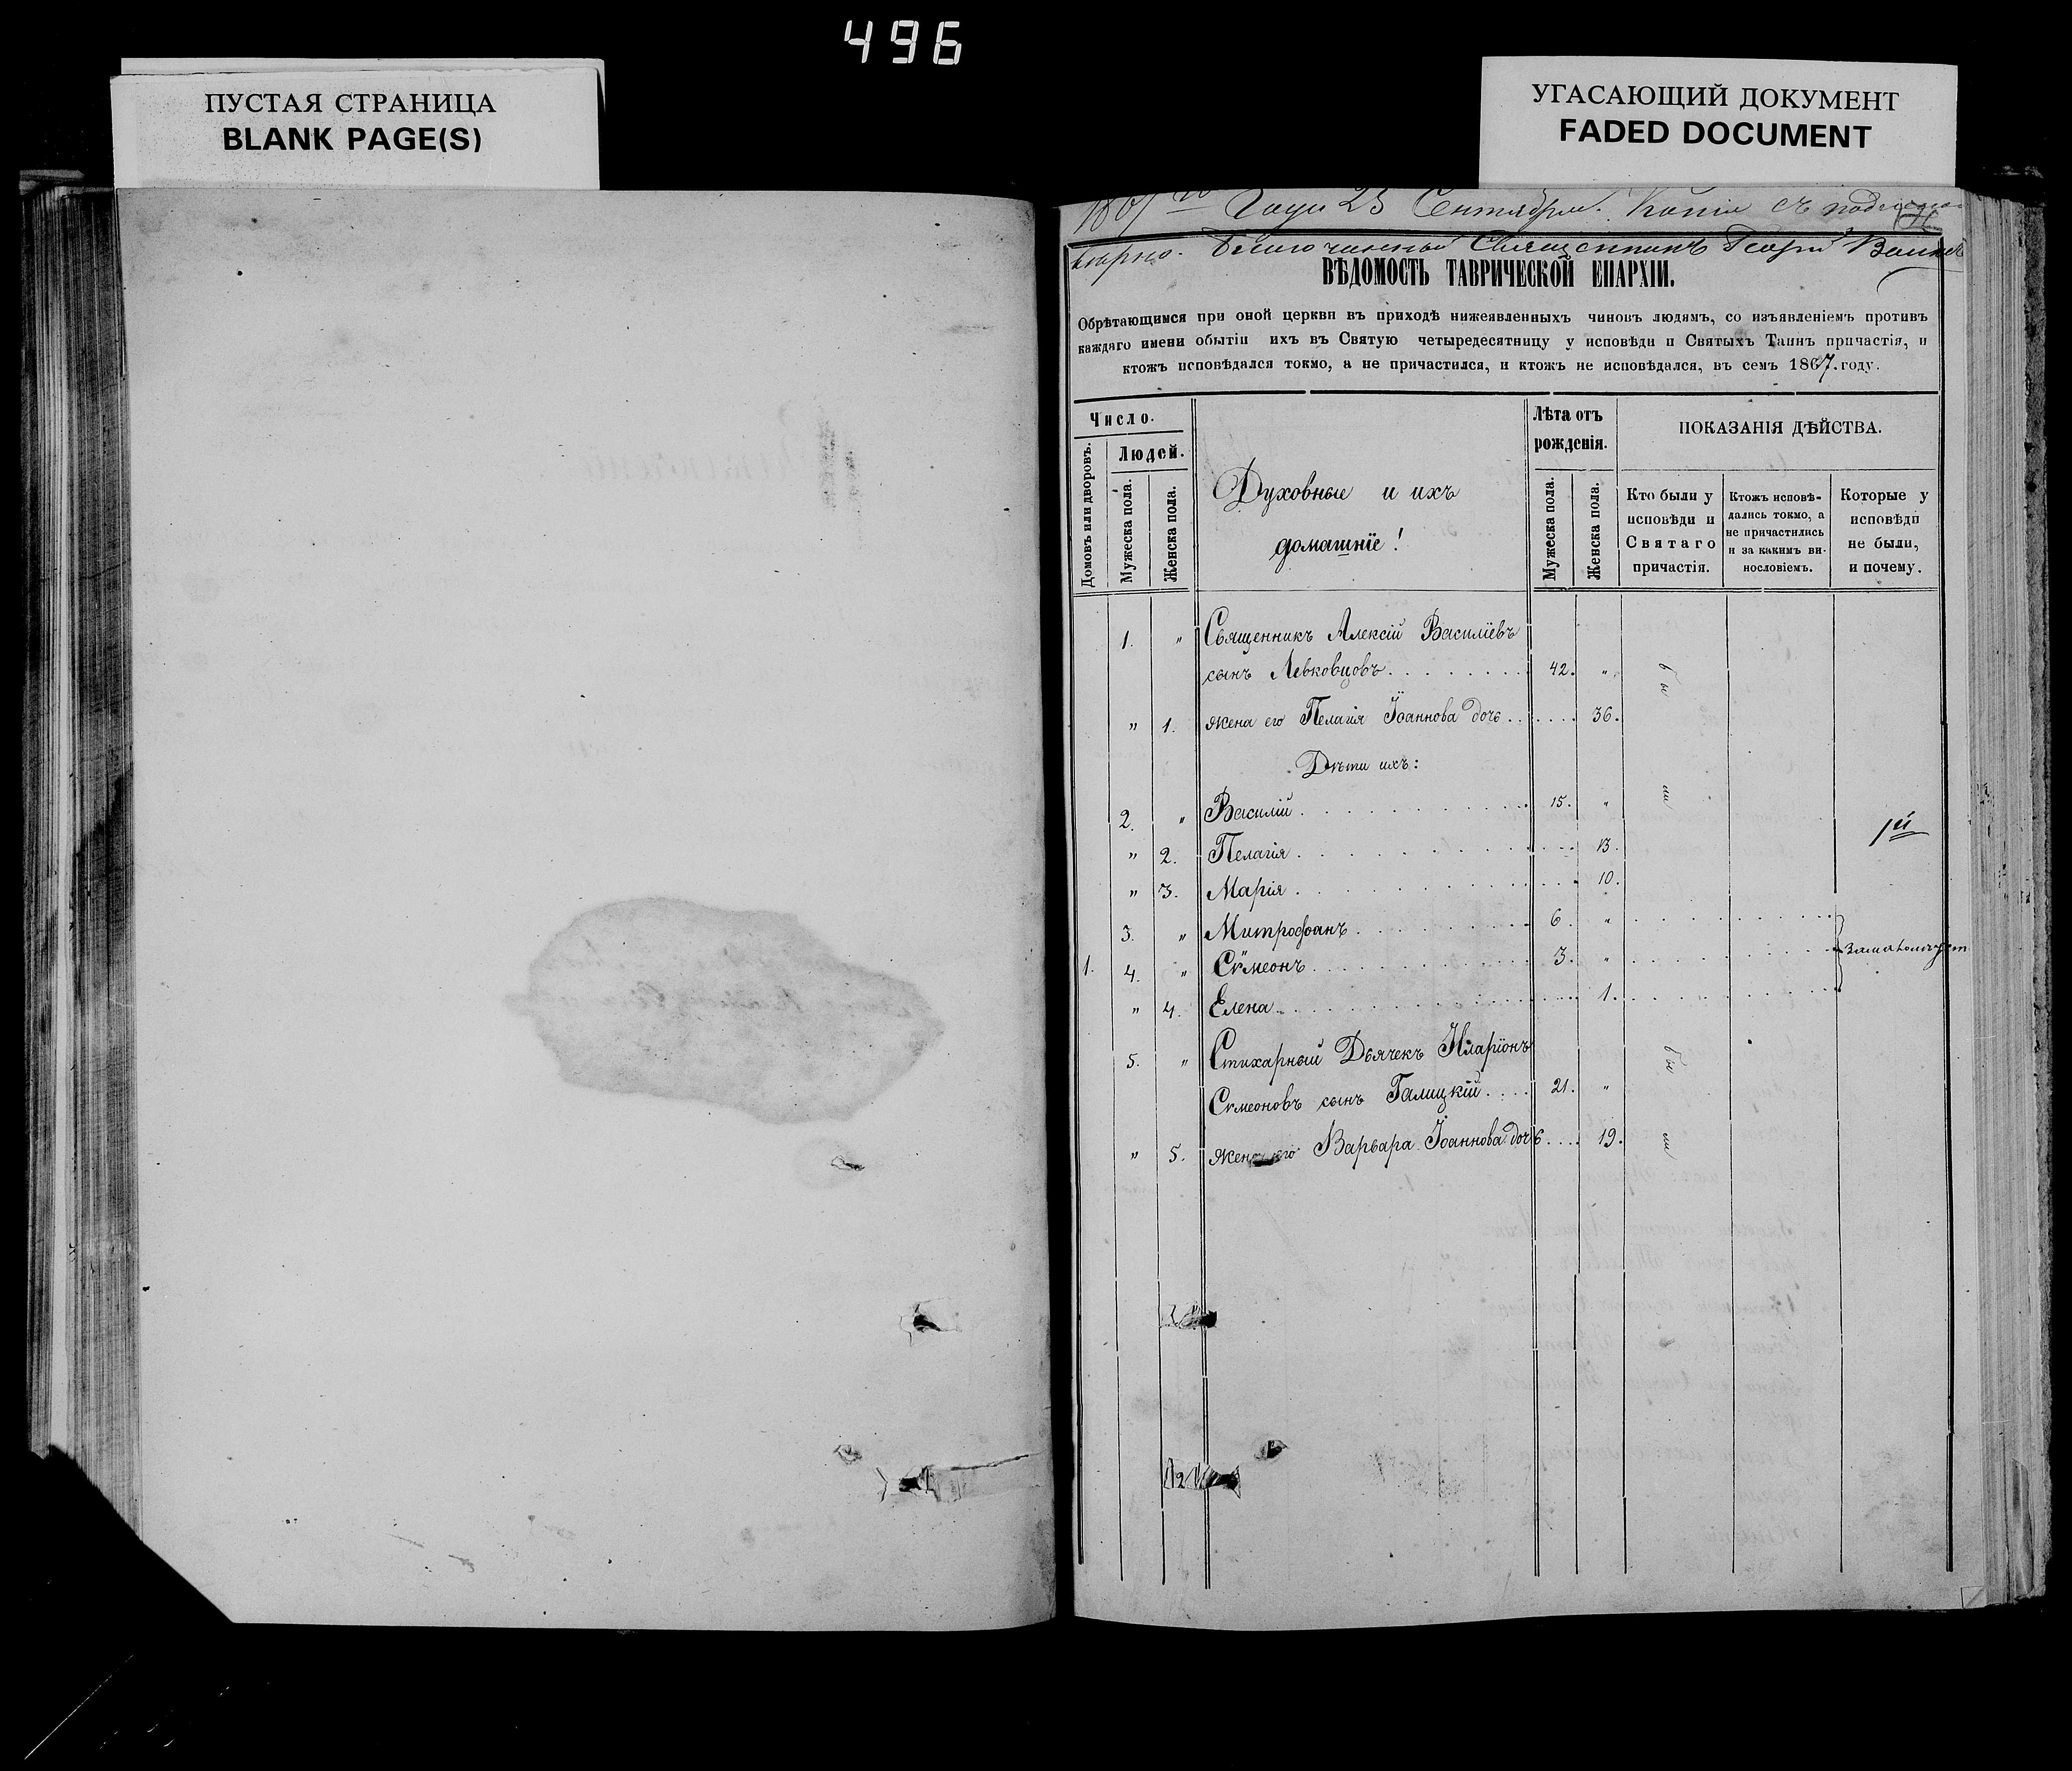 496
ПУСТАЯ СТРАНИЦА
BLANK PAGE(S)
УГАСАЮЩИЙ ДОКУМЕНТ
FADED DOCUMENT
1867 го Года 23 Сентября. Копія съ
вѣрно. Благочинный Священникъ Георгій
ВѢДОМОСТЬ ТАВРИЧЕСКОЙ ЕПАРХІИ.
Обрѣтающимся при оной церкви въ приходѣ нижеявленныхъ чиновъ людямъ, со изъявленіемъ противъ
каждаго имени обытіи ихъ въ Святую четыредесятницу у исповѣди и Святыхъ Таинъ причастія, и
ктожъ исповѣдался токмо, а не причастился, и ктожъ не исповѣдался, въ семъ 1867. году.
Число.
Домовъ или дворовъ.
Людей.
Мужеска пола.
Женска пола.
Духовные и ихъ
домашніе!
Лѣта отъ
рожденія.
Мужеска пола.
Женска пола.
ПОКАЗАНІЯ ДѢЙСТВА.
Кто были у
исповѣди и
Святаго
причастія.
Ктожъ исповѣ-
дались токмо, а
не причастились
и за какимъ ви-
нословіемъ.
Которые у
исповѣди
не были,
и почему.
1. " Священникъ Алексій Василіевъ
сынъ Левковцовъ........ 42. " бы
" 1. жена его Пелагія Іоаннова дочь...... 36.
Дѣти ихъ:
2. " Василій............ 15. " ли
" 2. Пелагія............ 13.
" 3. Марія............ 10.
3. " Митрофанъ......... 6. "
1. 4. " Сѵмеонъ........... 3. " за малолѣтст
" 4. Елена............ 1.
5. " Стихарный Дьячекъ Иларіонъ бы
Сѵмеоновъ сынъ Галицкій.... 21. "
" 5. жена его Варвара Іоаннова дочь.... 19. ли